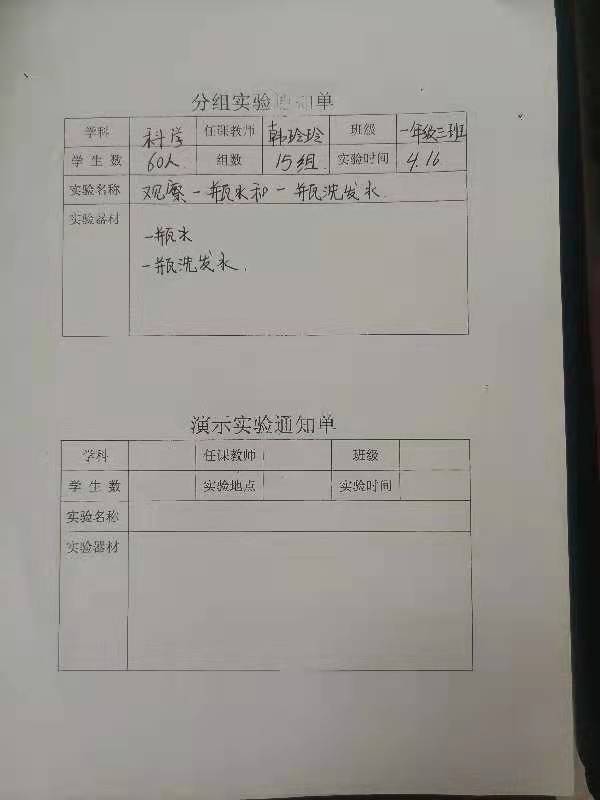 分组实验通知单
学科 科学 任课教师 韩玲玲 班级 一年级三班
学生数 60人 组数 15组 实验时间 4.16
实验名称 观察一瓶水和一瓶洗发水
实验器材
一瓶水
一瓶洗发水
演示实验通知单
学科 任课教师 班级
学生数 实验地点 实验时间
实验名称
实验器材